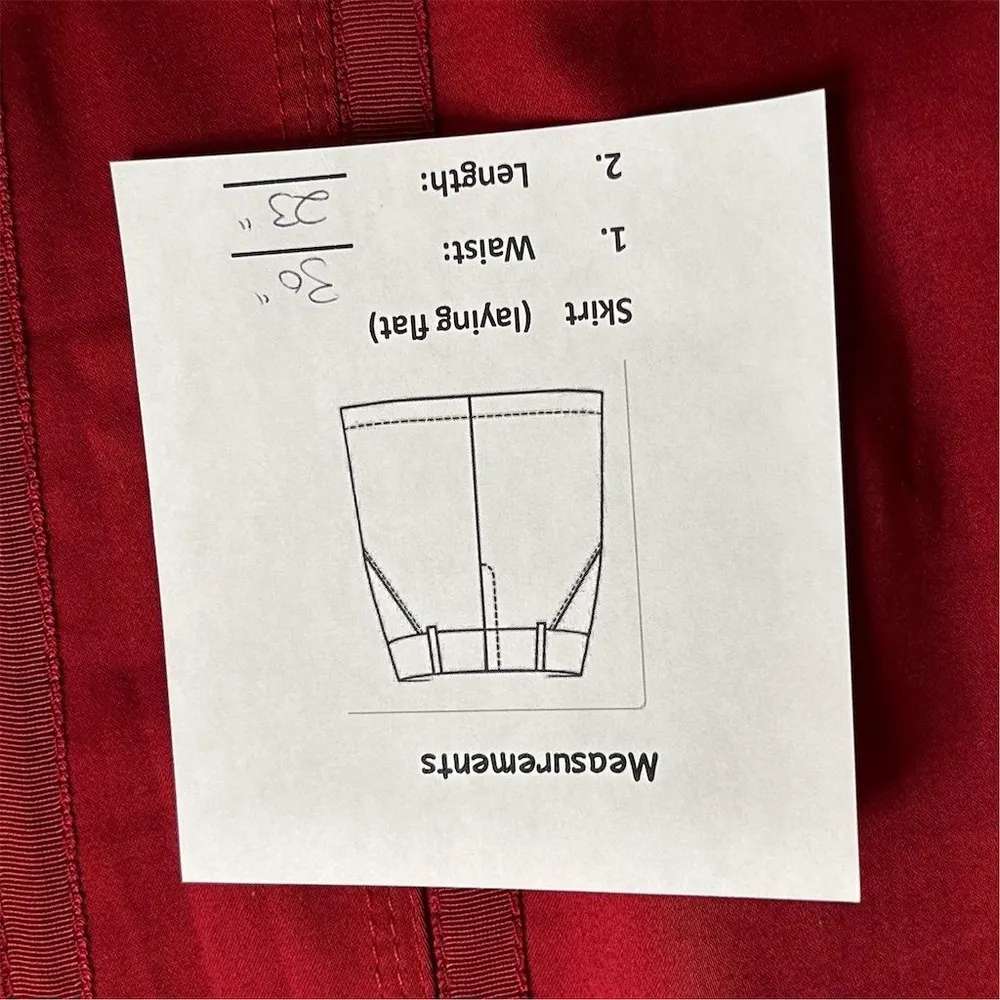 Measurements
Skirt (laying flat)
1. Waist: 30"
2. Length: 23"